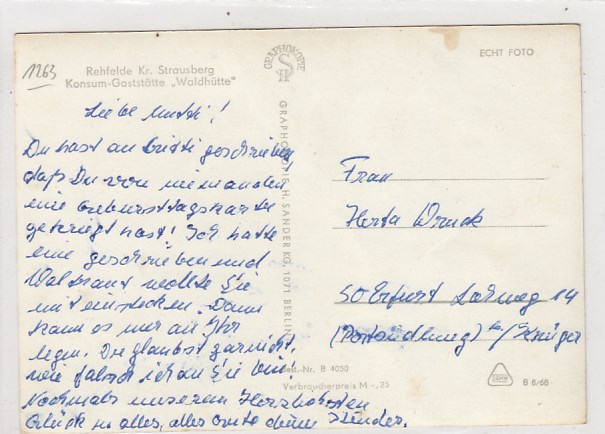 1263
Rehfelde Kr. Strausberg
Konsum-Gaststätte „Waldhütte"
Liebe Mutti!
Du hast an Britti geschrieben,
daß Du von niemanden
eine Geburtstagskarte
gekriegt hast! Ich hatte
eine geschrieben und
Waltraut wollte Sie
mit einstecken. Dann
kann es nur an Ihr
legen. Du glaubst gar nicht,
wie falsch ich an Sie bin!
Nochmals unseren Herzlichsten
Glück u. alles, alles Gute deine Kinder.
GRAPHOKOPIE
GRAPHOKOPIE H. SANDER KG, 1071 BERLIN
Best.-Nr. B 4050
Verbraucherpreis M -,25
ECHT FOTO
Frau
Herta Druck
50 Erfurt 14
(Postsiedlung) b/Krüger
B 6/68